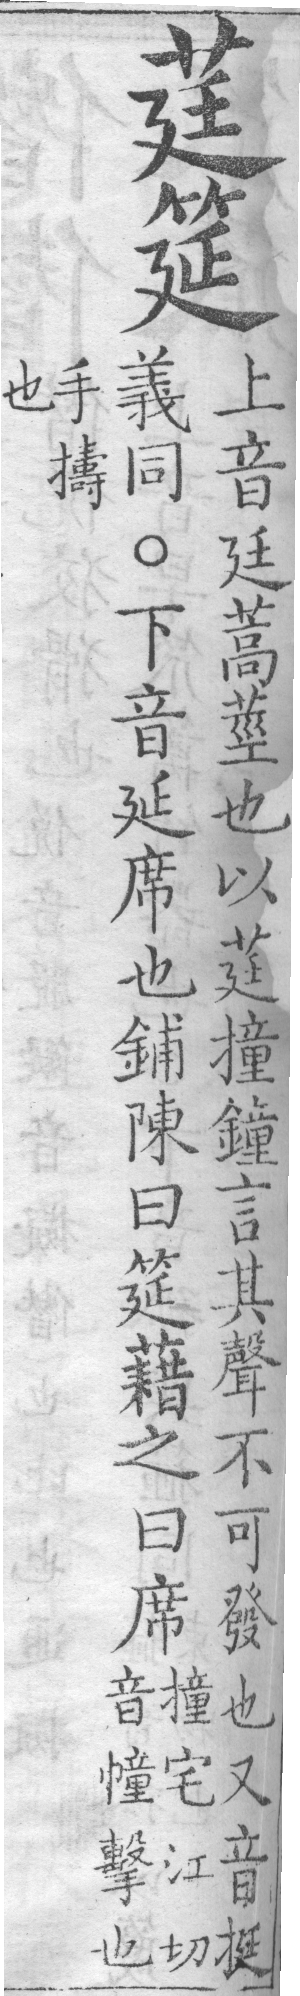 莛筵
上音廷蒿莖也以莛撞鐘言其聲不可發也又音挺
義同○下音延席也鋪陳曰筵藉之曰席
撞宅江切
音幢擊也
手擣
也